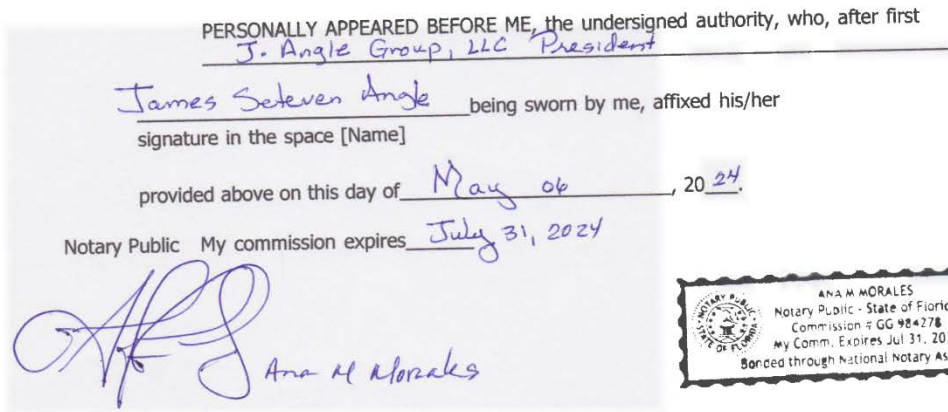 PERSONALLY APPEARED BEFORE ME, the undersigned authority, who, after first
J. Angle Group, LLC President
James Seteven Angle being sworn by me, affixed his/her
signature in the space [Name]
provided above on this day of May 06, 20 24.
Notary Public My commission expires July 31, 2024
Ana M Morales
ANA M MORALES
Notary Public - State of Florid
Commission # GG 984278
My Comm. Expires Jul 31, 20
Bonded through National Notary As
NOTARY PUBLIC
STATE OF FLORIDA